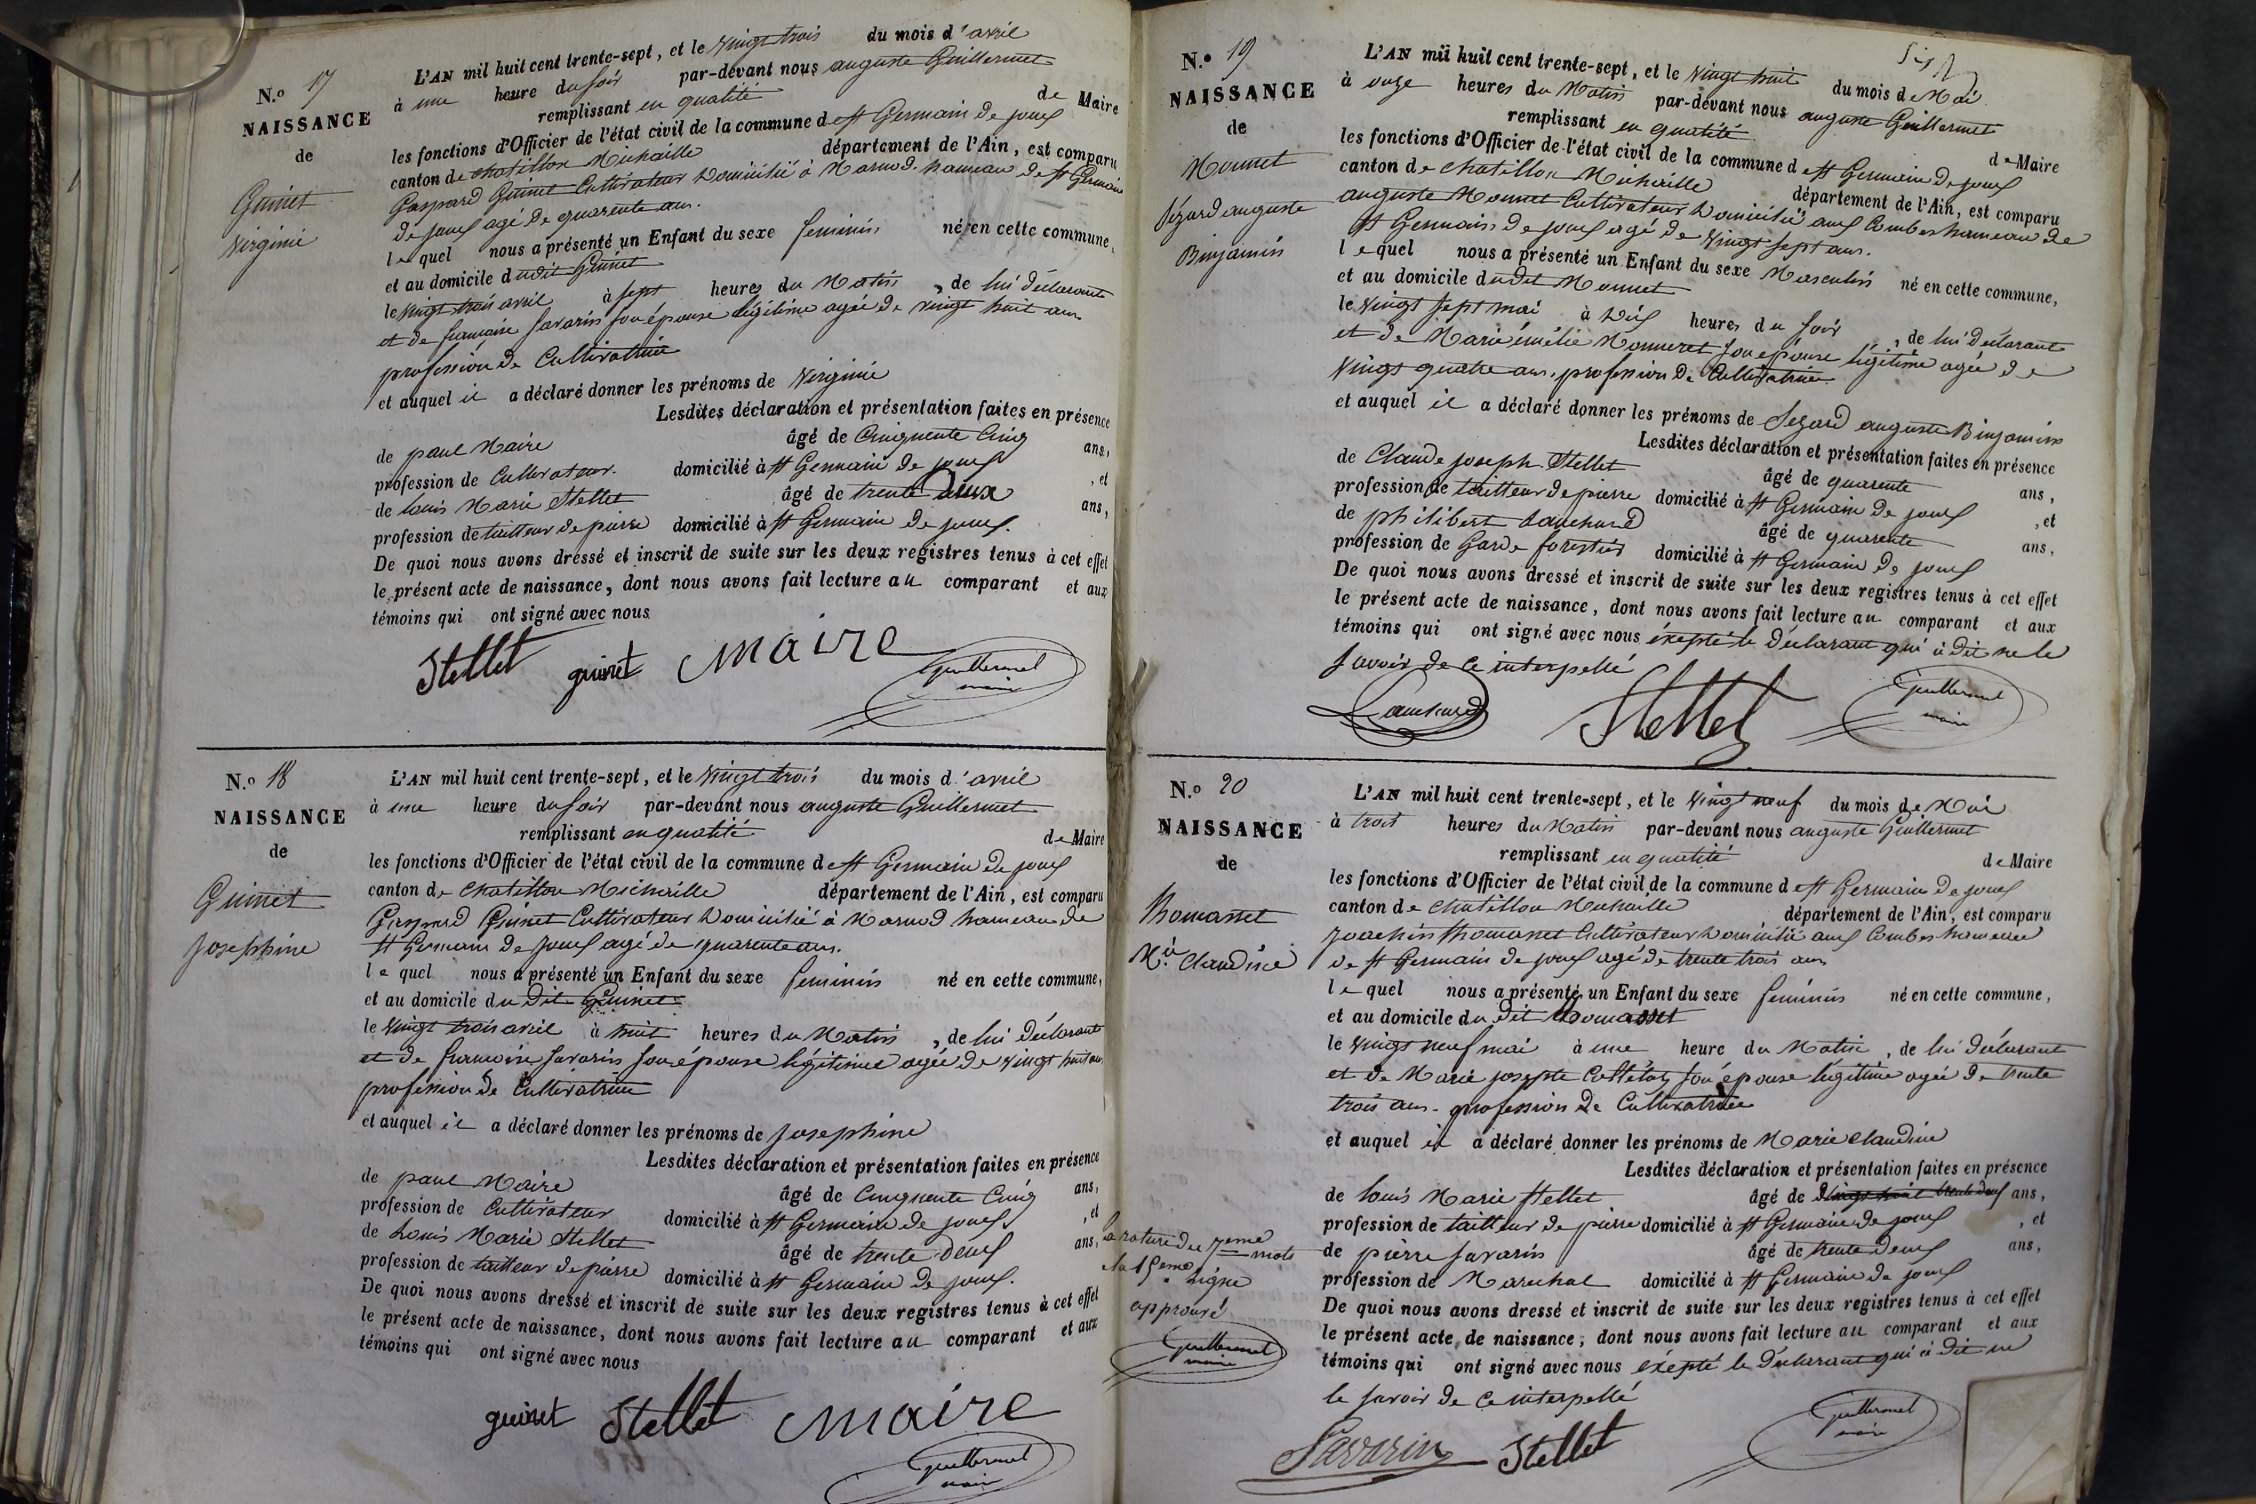 N.o 17
NAISSANCE
de
Guinet
Virginie
L'AN mil huit cent trente-sept, et le vingt trois du mois d'avril
à une heure du soir par-devant nous auguste Guillermet
remplissant en qualité de Maire
les fonctions d'Officier de l'état civil de la commune de st Germain de joux
canton de chatillon Michaille département de l'Ain, est comparu
Gaspard Guinet Cultivateur domicilié à Marnod hameau de st Germain
de joux agé de quarente ans.
lequel nous a présenté un Enfant du sexe feminin né en cette commune,
et au domicile dudit Guinet
le vingt trois avril à sept heures du Matin, de lui déclarant
et de francoise savarin son épouse légitime agée de vingt huit ans
profession de Cultivatrice
et auquel il a déclaré donner les prénoms de Virginie
Lesdites déclaration et présentation faites en présence
de paul Maire âgé de Cinquente Cinq ans,
profession de Cultivateur domicilié à st Germain de joux, et
de louis Marie Stellet âgé de trente Deux ans,
profession de tailleur de pierre domicilié à st Germain de joux.
De quoi nous avons dressé et inscrit de suite sur les deux registres tenus à cet effet
le présent acte de naissance, dont nous avons fait lecture au comparant et aux
témoins qui ont signé avec nous
Stellet guinet maire
Guillermet
maire
N.o 18
NAISSANCE
de
Guinet
Josephine
L'AN mil huit cent trente-sept, et le vingt trois du mois d'avril
à une heure du soir par-devant nous auguste Guillermet
remplissant en qualité de Maire
les fonctions d'Officier de l'état civil de la commune de st Germain de joux
canton de chatillon Michaille département de l'Ain, est comparu
Gaspard Guinet Cultivateur domicilié à Marnod hameau de
st Germain de joux agé de quarente ans.
lequel nous a présenté un Enfant du sexe feminin né en cette commune,
et au domicile du dit Guinet
le vingt trois avril à huit heures du Matin, de lui déclarant
et de francoise savarin son épouse légitime agée de vingt huit ans
profession de Cultivatrice
et auquel il a déclaré donner les prénoms de Josephine
Lesdites déclaration et présentation faites en présence
de paul Maire âgé de Cinquente Cinq ans,
profession de Cultivateur domicilié à st Germain de joux, et
de Louis Marie Stellet âgé de trente deux ans,
profession de tailleur de pierre domicilié à st Germain de joux.
De quoi nous avons dressé et inscrit de suite sur les deux registres tenus à cet effet
le présent acte de naissance, dont nous avons fait lecture au comparant et aux
témoins qui ont signé avec nous
guinet Stellet maire
Guillermet
maire
N.o 19
NAISSANCE
de
Monnet
sézard auguste
Binjamin
L'AN mil huit cent trente-sept, et le vingt huit du mois de Mai
à onze heures du Matin par-devant nous auguste Guillermet
remplissant en qualité de Maire
les fonctions d'Officier de l'état civil de la commune de st Germain de joux
canton de chatillon Michaille département de l'Ain, est comparu
auguste Monnet Cultivateur domicilié aux Combes hameau de
st Germain de joux agé de vingt sept ans.
lequel nous a présenté un Enfant du sexe Masculin né en cette commune,
et au domicile dudit Monnet
le vingt sept mai à dix heures du soir, de lui déclarant
et de Marie émélie Monneret son épouse légitime agée de
vingt quatre ans, profession de Cultivatrice
et auquel il a déclaré donner les prénoms de Sezard auguste Binjamin
Lesdites déclaration et présentation faites en présence
de Claude joseph Stellet âgé de quarente ans,
profession de tailleur de pierre domicilié à st Germain de joux, et
de philibert Lauchard âgé de quarente ans,
profession de Garde forestier domicilié à st Germain de joux
De quoi nous avons dressé et inscrit de suite sur les deux registres tenus à cet effet
le présent acte de naissance, dont nous avons fait lecture au comparant et aux
témoins qui ont signé avec nous éxepté le déclarant qui à dit ne le
savoir de ce interpellé
Stellet
Guillermet
maire
N.o 20
NAISSANCE
de
thomasset
Mie Claudine
L'AN mil huit cent trente-sept, et le vingt neuf du mois de Mai
à trois heures du Matin par-devant nous auguste Guillermet
remplissant en qualité de Maire
les fonctions d'Officier de l'état civil de la commune de st Germain de joux
canton de chatillon Michaille département de l'Ain, est comparu
joachin thomasset Cultivateur domicilié aux Combes hameau
de st Germain de joux agé de trente trois ans
lequel nous a présenté un Enfant du sexe feminin né en cette commune,
et au domicile du dit thomasset
le vingt neuf mai à une heure du Matin, de lui déclarant
et de Marie josepte son épouse légitime agée de trente
trois ans. profession de Cultivatrice
et auquel il a déclaré donner les prénoms de Marie claudine
Lesdites déclaration et présentation faites en présence
de louis Marie Stellet âgé de vingt huit trente deux ans,
profession de tailleur de pierre domicilié à st Germain de joux, et
de pierre savarin âgé de trente deux ans,
profession de Marechal domicilié à st Germain de joux
De quoi nous avons dressé et inscrit de suite sur les deux registres tenus à cet effet
le présent acte de naissance, dont nous avons fait lecture au comparant et aux
témoins qui ont signé avec nous éxepté le déclarant qui à dit ne
le savoir de ce interpellé
la rature du 7eme mots
a la 15eme ligne
approuvé
Guillermet
maire
Savarin Stellet
Guillermet
maire